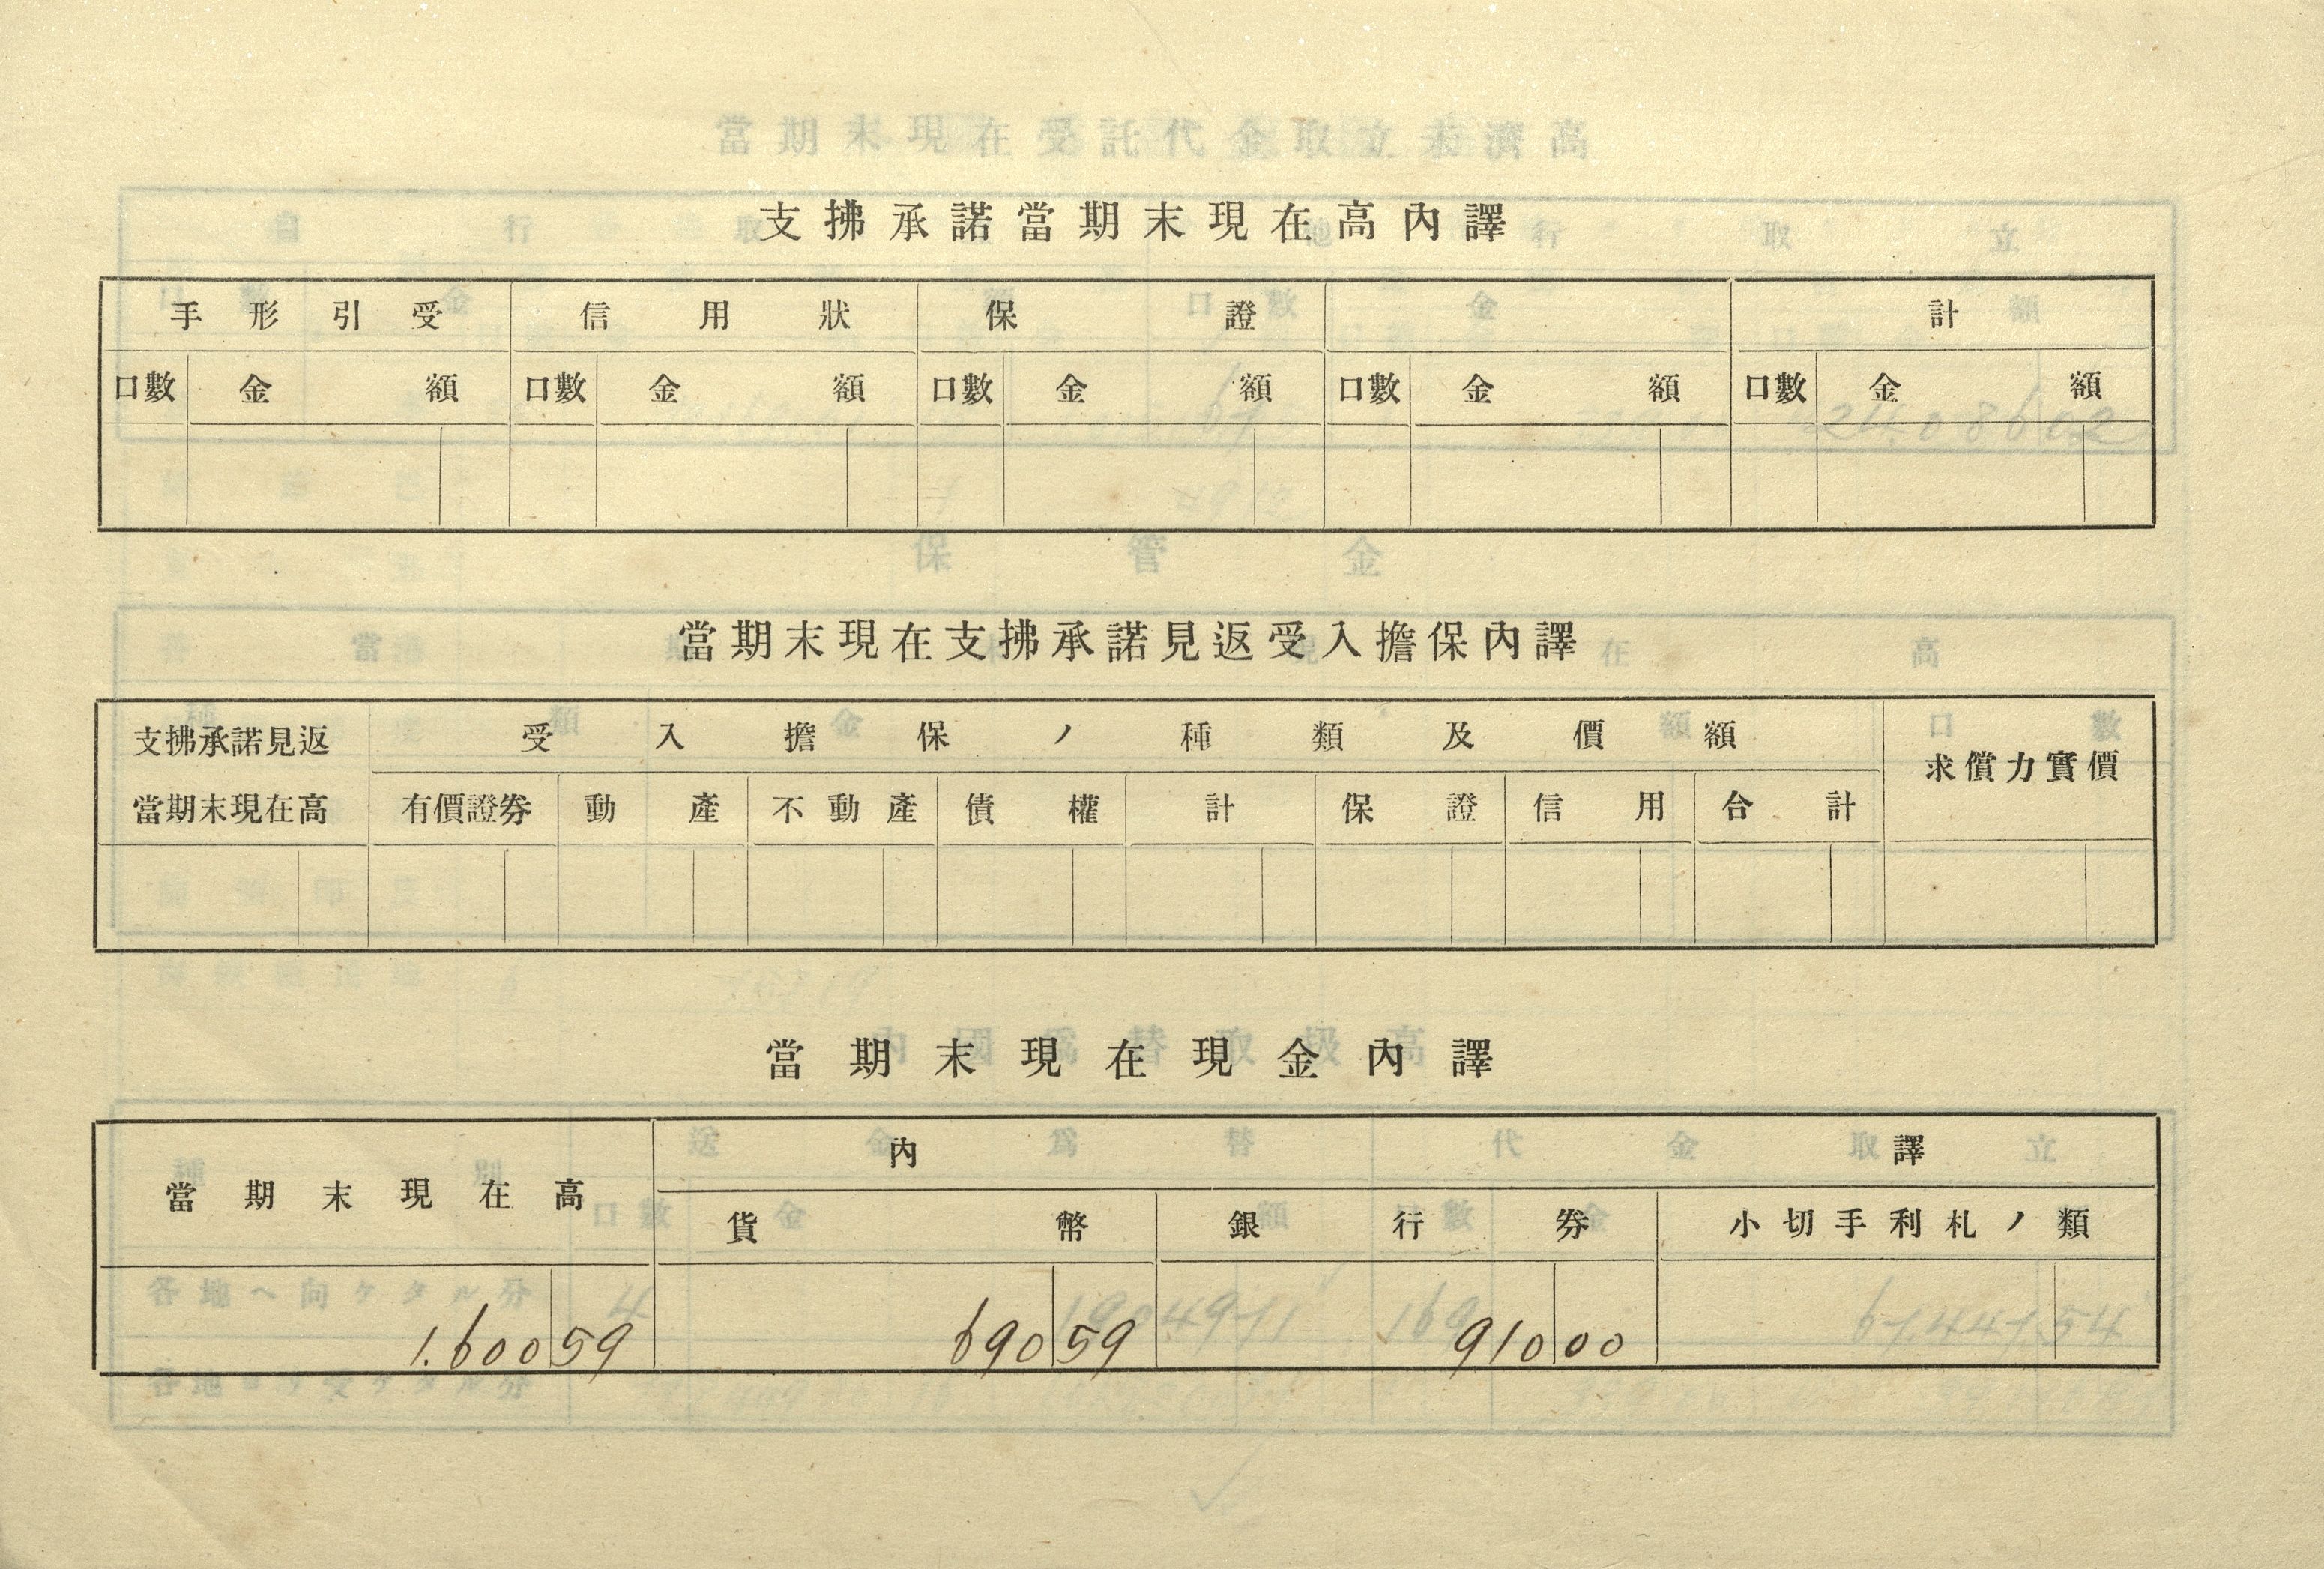 支拂承諾當期末現在高內譯
手形引受 信用狀 保證 計
口數 金額 口數 金額 口數 金額 口數 金額 口數 金額
當期末現在支拂承諾見返受入擔保內譯
支拂承諾見返當期末現在高 受入擔保ノ種類及價額 求償力實價
有價證券 動產 不動產 債權 計 保證 信用 合計
當期末現在現金內譯
當期末現在高 內譯
貨幣 銀行券 小切手利札ノ類
1.600 59 690 59 910 00